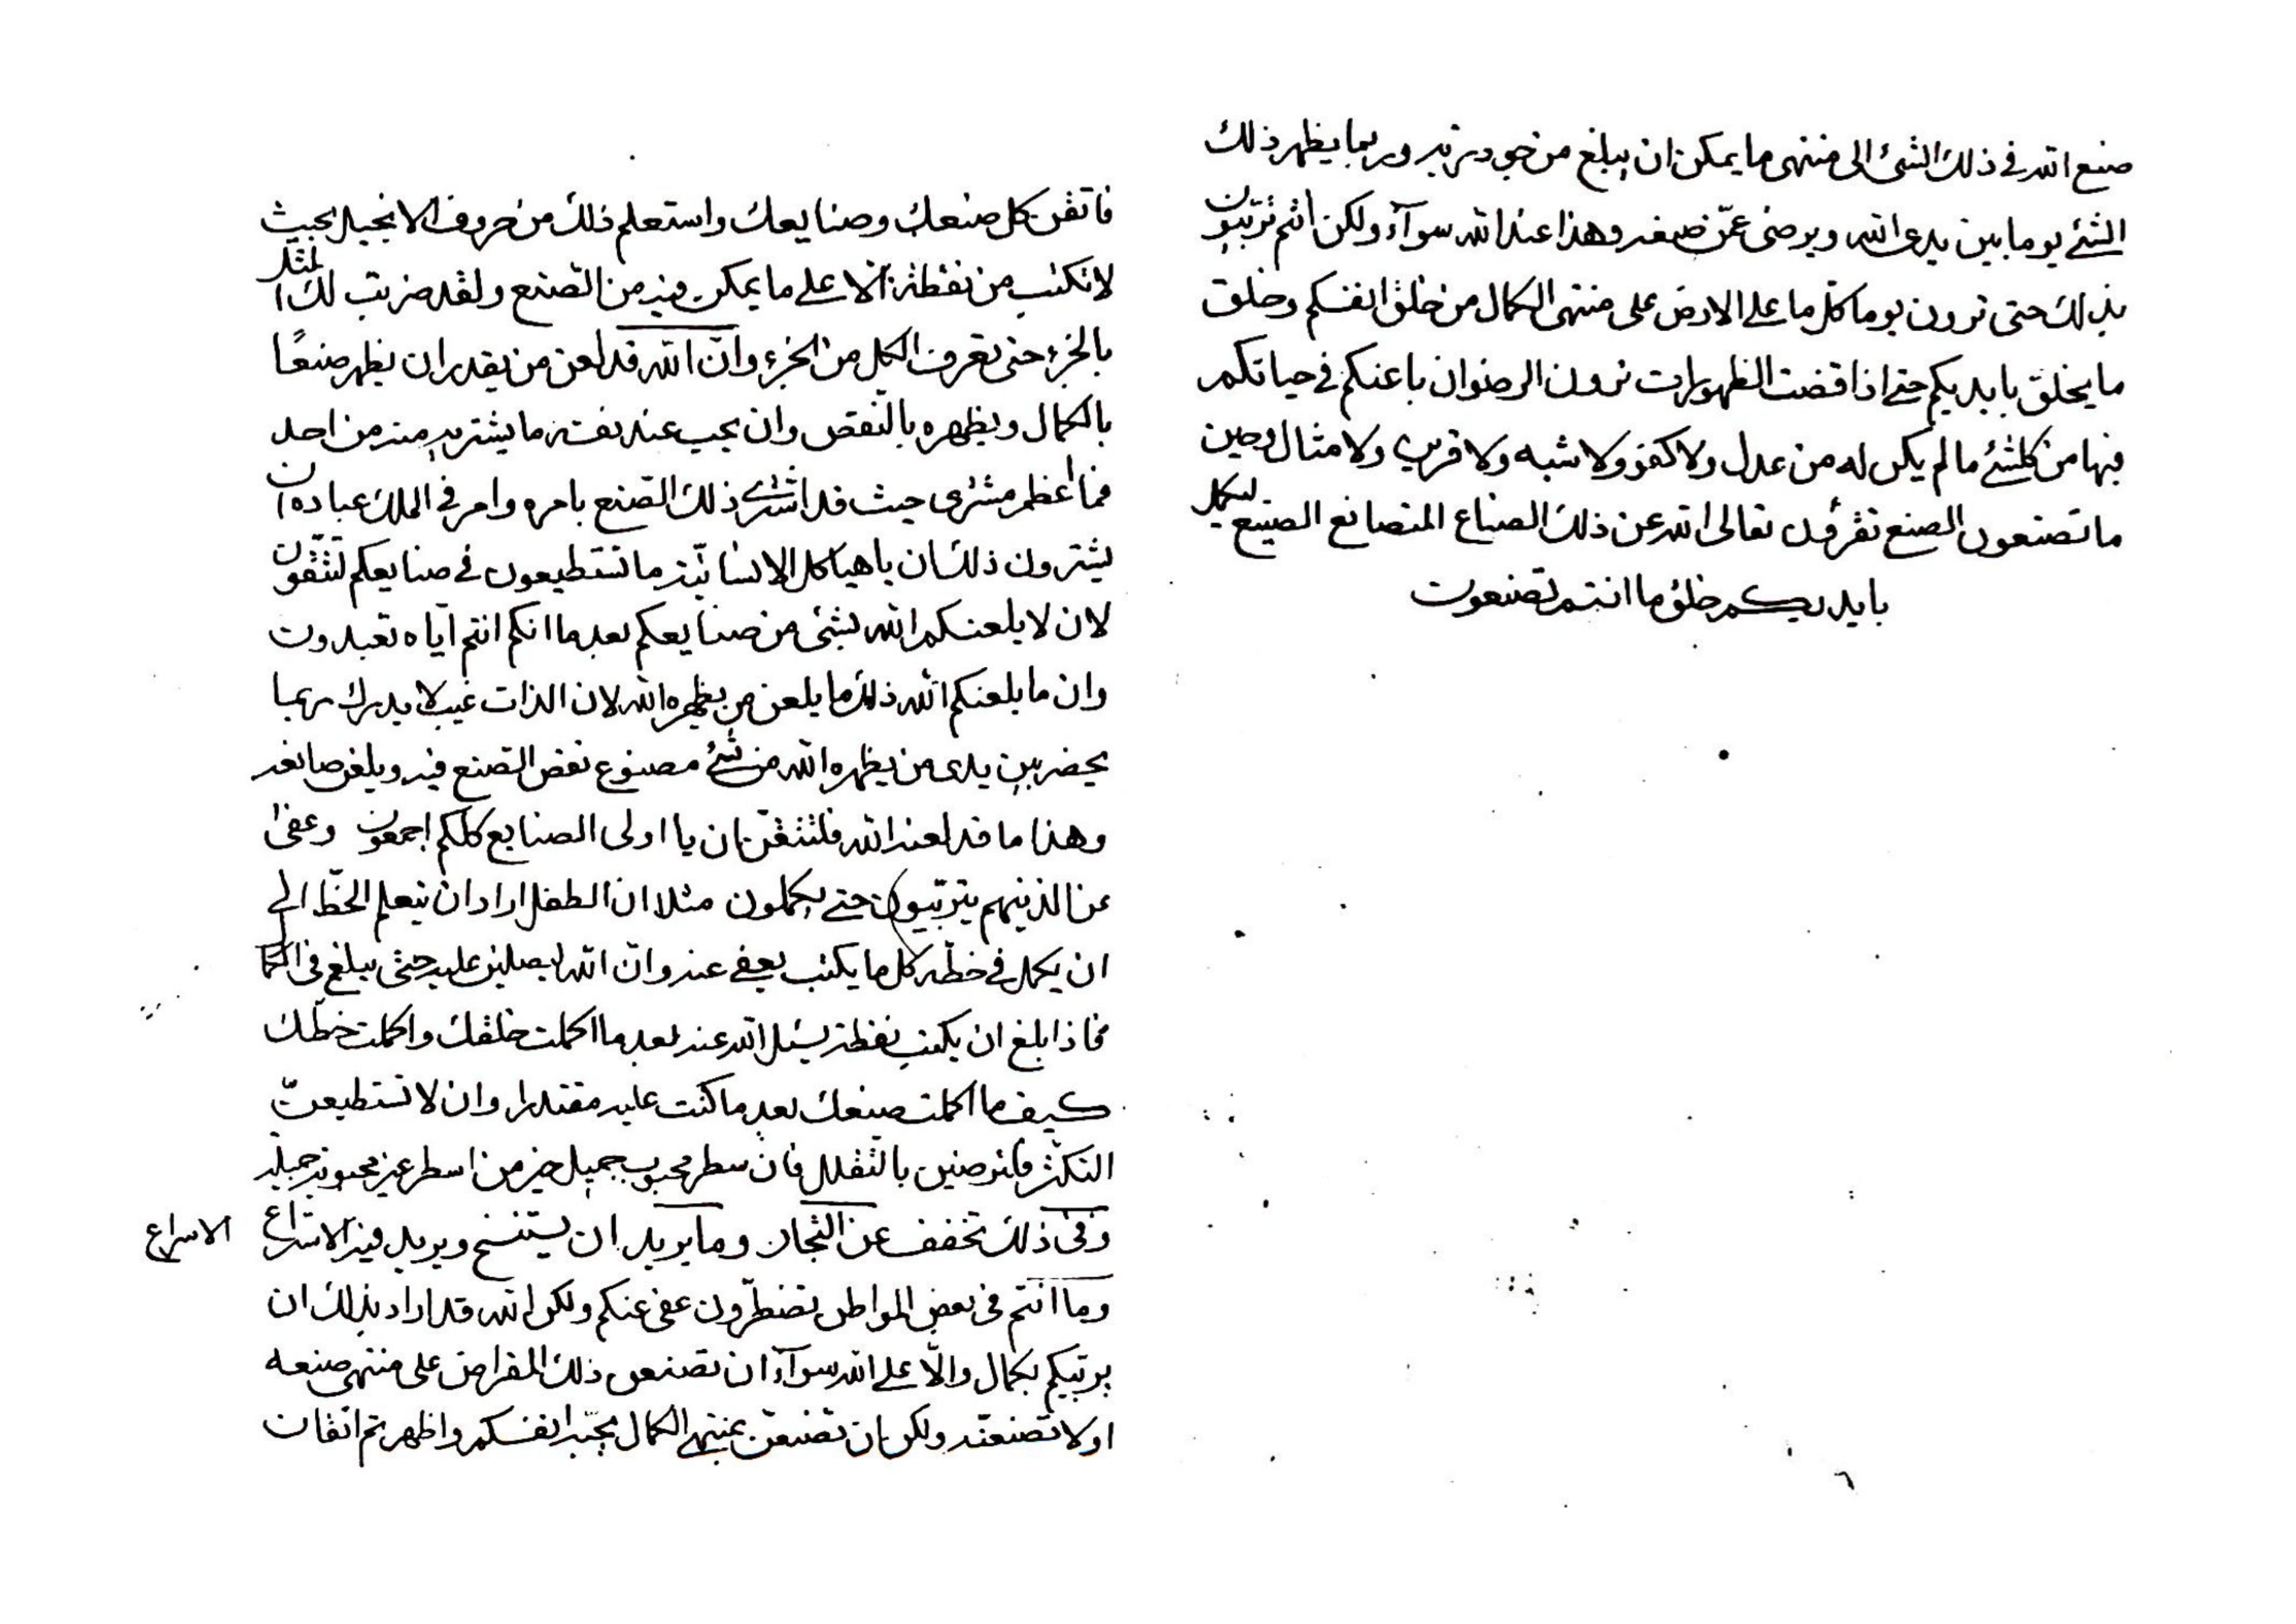 صنع الله في ذلك الشئ الى منتهى ما يمكن ان يبلغ من جودتيه وربما يظهر ذلك
الشئ يوما بين يدى الله ويرضى عمّن صنعه وهذا عند الله سوآء ولكن انتم تربّيون
بذلك حتى ترون يوما كل ما على الارض على منتهى الكمال من خلق انفسكم وخلق
ما يخلق بايديكم حتى اذا قضت الظهورات ترون الرضوان باعينكم في حياتكم
فيها من كلشئ ما لم يكن له من عدل ولا كفو ولا شبه ولا قرين ولا مثال وحين
ما تصنعون الصنع تقرؤن تعالى الله عن ذلك الصناع المتصانع الصنيع ليكمل
بايديكم خلق ما انتم تصنعون
فاتقن كل صنعك وصنايعك واستعلم ذلك من حروف الانجيل بحيث
لا تكتب من نقطة الا على ما يمكن فيه من الصنع ولقد ضربت لك المثل
بالجزء حتى تعرف الكل من الجزء وانّ الله قد لعن من يقدر ان يظهر صنعًا
بالكمال ويظهره بالنّقص وان يحب عند نفسه ما يشتريه منه من احد
فما اعظم مشترى حيث قد اشترى ذلك الصنع بامره وامر في الملك عباده ان
يشترون ذلك ان يا هياكل الانسانيّة ما تستطيعون في صنايعكم لتتّقنون
لان لا يلعنكم الله بشئ من صنايعكم بعد ما انكم انتم ايّاه تعبدون
وان ما يلعنكم الله ذلك ما يلعن من يظهره الله لان الذات غيب لا يدرك ربما
يحضر بين يدى من يظهره الله من شئ مصنوع نقض الصنع فيه ويلعن صانعه
وهذا ما قد لعنه الله فلتتقنّ ان يا اولى الصنايع كلكم اجمعون وعفى
عن الذينهم يتربّيون حتى يكملون مثلا ان الطفل اراد ان يتعلم الخطّ الى
ان يكمل في خطّه كل ما يكتب يعفى عنه وان الله ليصلين عليه حتى يبلغ في الكما
فاذا بلغ ان يكتب نقطة يسئل الله عنه بعد ما اكملت خلقك واكملت خطّك
كيف ما اكملت صنعك بعد ما كنت عليه مقتدرا وان لا تستطيعنّ
التكثر فلترضين بالتقلل فان سطر محبوب جميل خير من اسطر غير محبوبة جميلة
وفى ذلك تخفف عن التجار وما يريد ان يستنسخ ويريد فيه الاسراع
الاسراع
وما انتم في بعض المواطن تضطرّون عفى عنكم ولكن الله قد اراد بذلك ان
يربّيكم بكمال والّا على الله سوآء ان تصنعن ذلك المقراض على منتهى صنعه
او لا تصنعنّه ولكن ان تصنعنّ بمنتهى الكمال يحبّه انفسكم واظهرتم اتقان